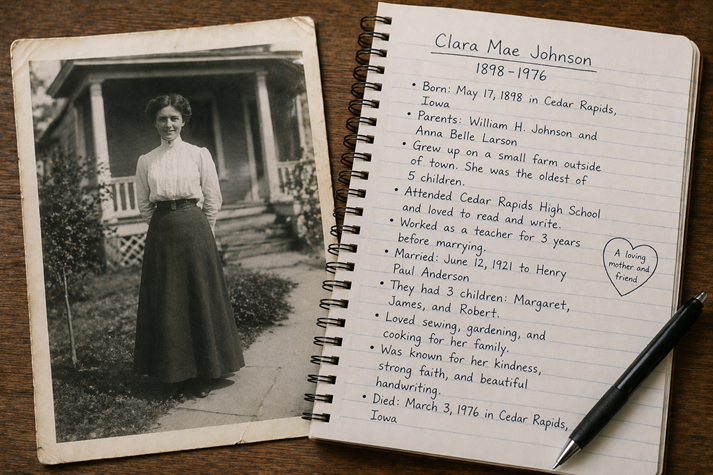 Clara Mae Johnson
1898-1976
• Born: May 17, 1898 in Cedar Rapids,
Iowa
• Parents: William H. Johnson and
Anna Belle Larson
• Grew up on a small farm outside
of town. She was the oldest of
5 children.
• Attended Cedar Rapids High School
and loved to read and write.
• Worked as a teacher for 3 years
before marrying.
• Married: June 12, 1921 to Henry
Paul Anderson
• They had 3 children: Margaret,
James, and Robert.
• Loved sewing, gardening, and
cooking for her family.
• Was known for her kindness,
strong faith, and beautiful
handwriting.
• Died: March 3, 1976 in Cedar Rapids,
Iowa
A loving
mother and
friend